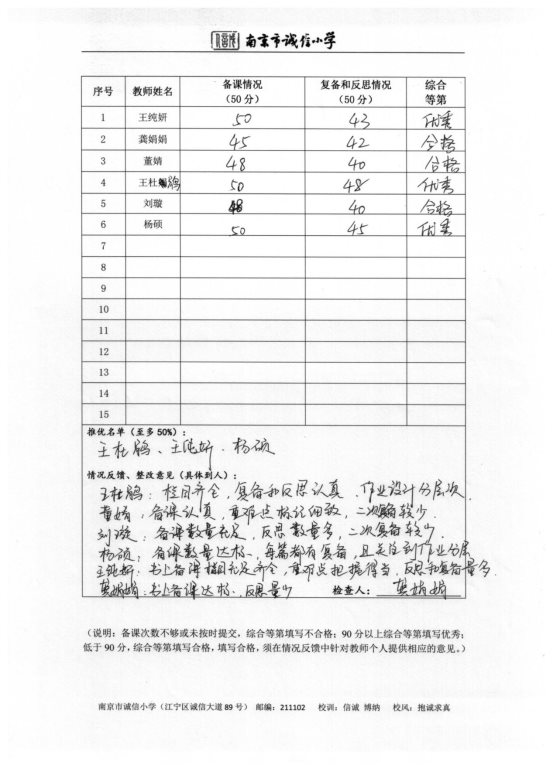 南京市诚信小学
序号 教师姓名 备课情况（50分） 复备和反思情况（50分） 综合等第
1 王纯妍 50 43 优秀
2 龚娟娟 45 42 合格
3 董婧 48 40 合格
4 王杜鹃 50 48 优秀
5 刘璇 48 40 合格
6 杨硕 50 45 优秀
7
8
9
10
11
12
13
14
15
推优名单（至多50%）：
王杜鹃、王纯妍、杨硕
情况反馈、整改意见（具体到人）：
王杜鹃：栏目齐全，复备和反思认真、作业设计分层次
董婧：备课认真，重难点标记细致，二次复备较少
刘璇：备课数量充足，反思数量多，二次复备较少
杨硕，备课数量达标、每篇都有复备，且关注到作业分层
王纯妍：书上备课栏目充足齐全，重难点把握得当，反思和复备量多
龚娟娟：书上备课达标、反思量少 检查人：龚娟娟
（说明：备课次数不够或未按时提交，综合等第填写不合格；90分以上综合等第填写优秀；
低于90分，综合等第填写合格，填写合格，须在情况反馈中针对教师个人提供相应的意见。）
南京市诚信小学（江宁区诚信大道89号） 邮编：211102 校训：信诚 博纳 校风：抱诚求真